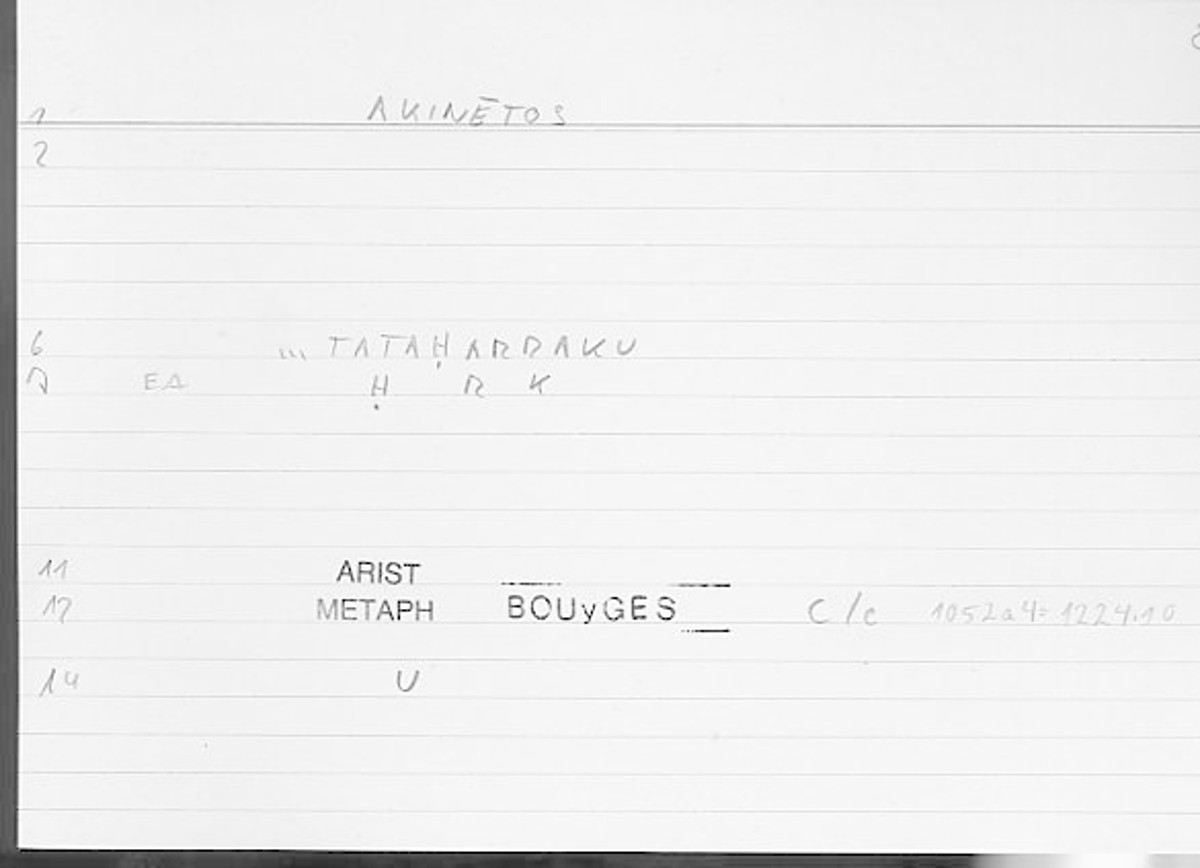 1 AKINĒTOS
2
6 ... TATAḤARRAKU
EA Ḥ R K
11 ARIST
12 METAPH BOUyGES C/c 1052a4= 1224.10
14 U